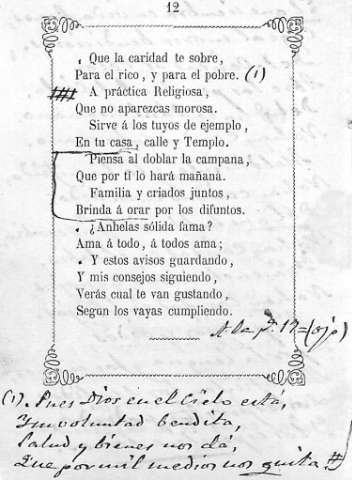 12
Que la caridad te sobre,
Para el rico, y para el pobre. (1)
A práctica Religiosa,
Que no aparezcas morosa.
Sirve á los tuyos de ejemplo,
En tu casa, calle y Templo.
Piensa al doblar la campana,
Que por tí lo hará mañana.
Familia y criados juntos,
Brinda á orar por los difuntos.
¿Anhelas sólida fama?
Ama á todo, á todos ama;
Y estos avisos guardando,
Y mis consejos siguiendo,
Verás cual te van gustando,
Segun los vayas cumpliendo.
A la p.ª 17=(ojo)
(1). Pues Dios en el Cielo está,
Y su voluntad bendita,
Salud y bienes nos dá,
Que por mil medios nos quita.